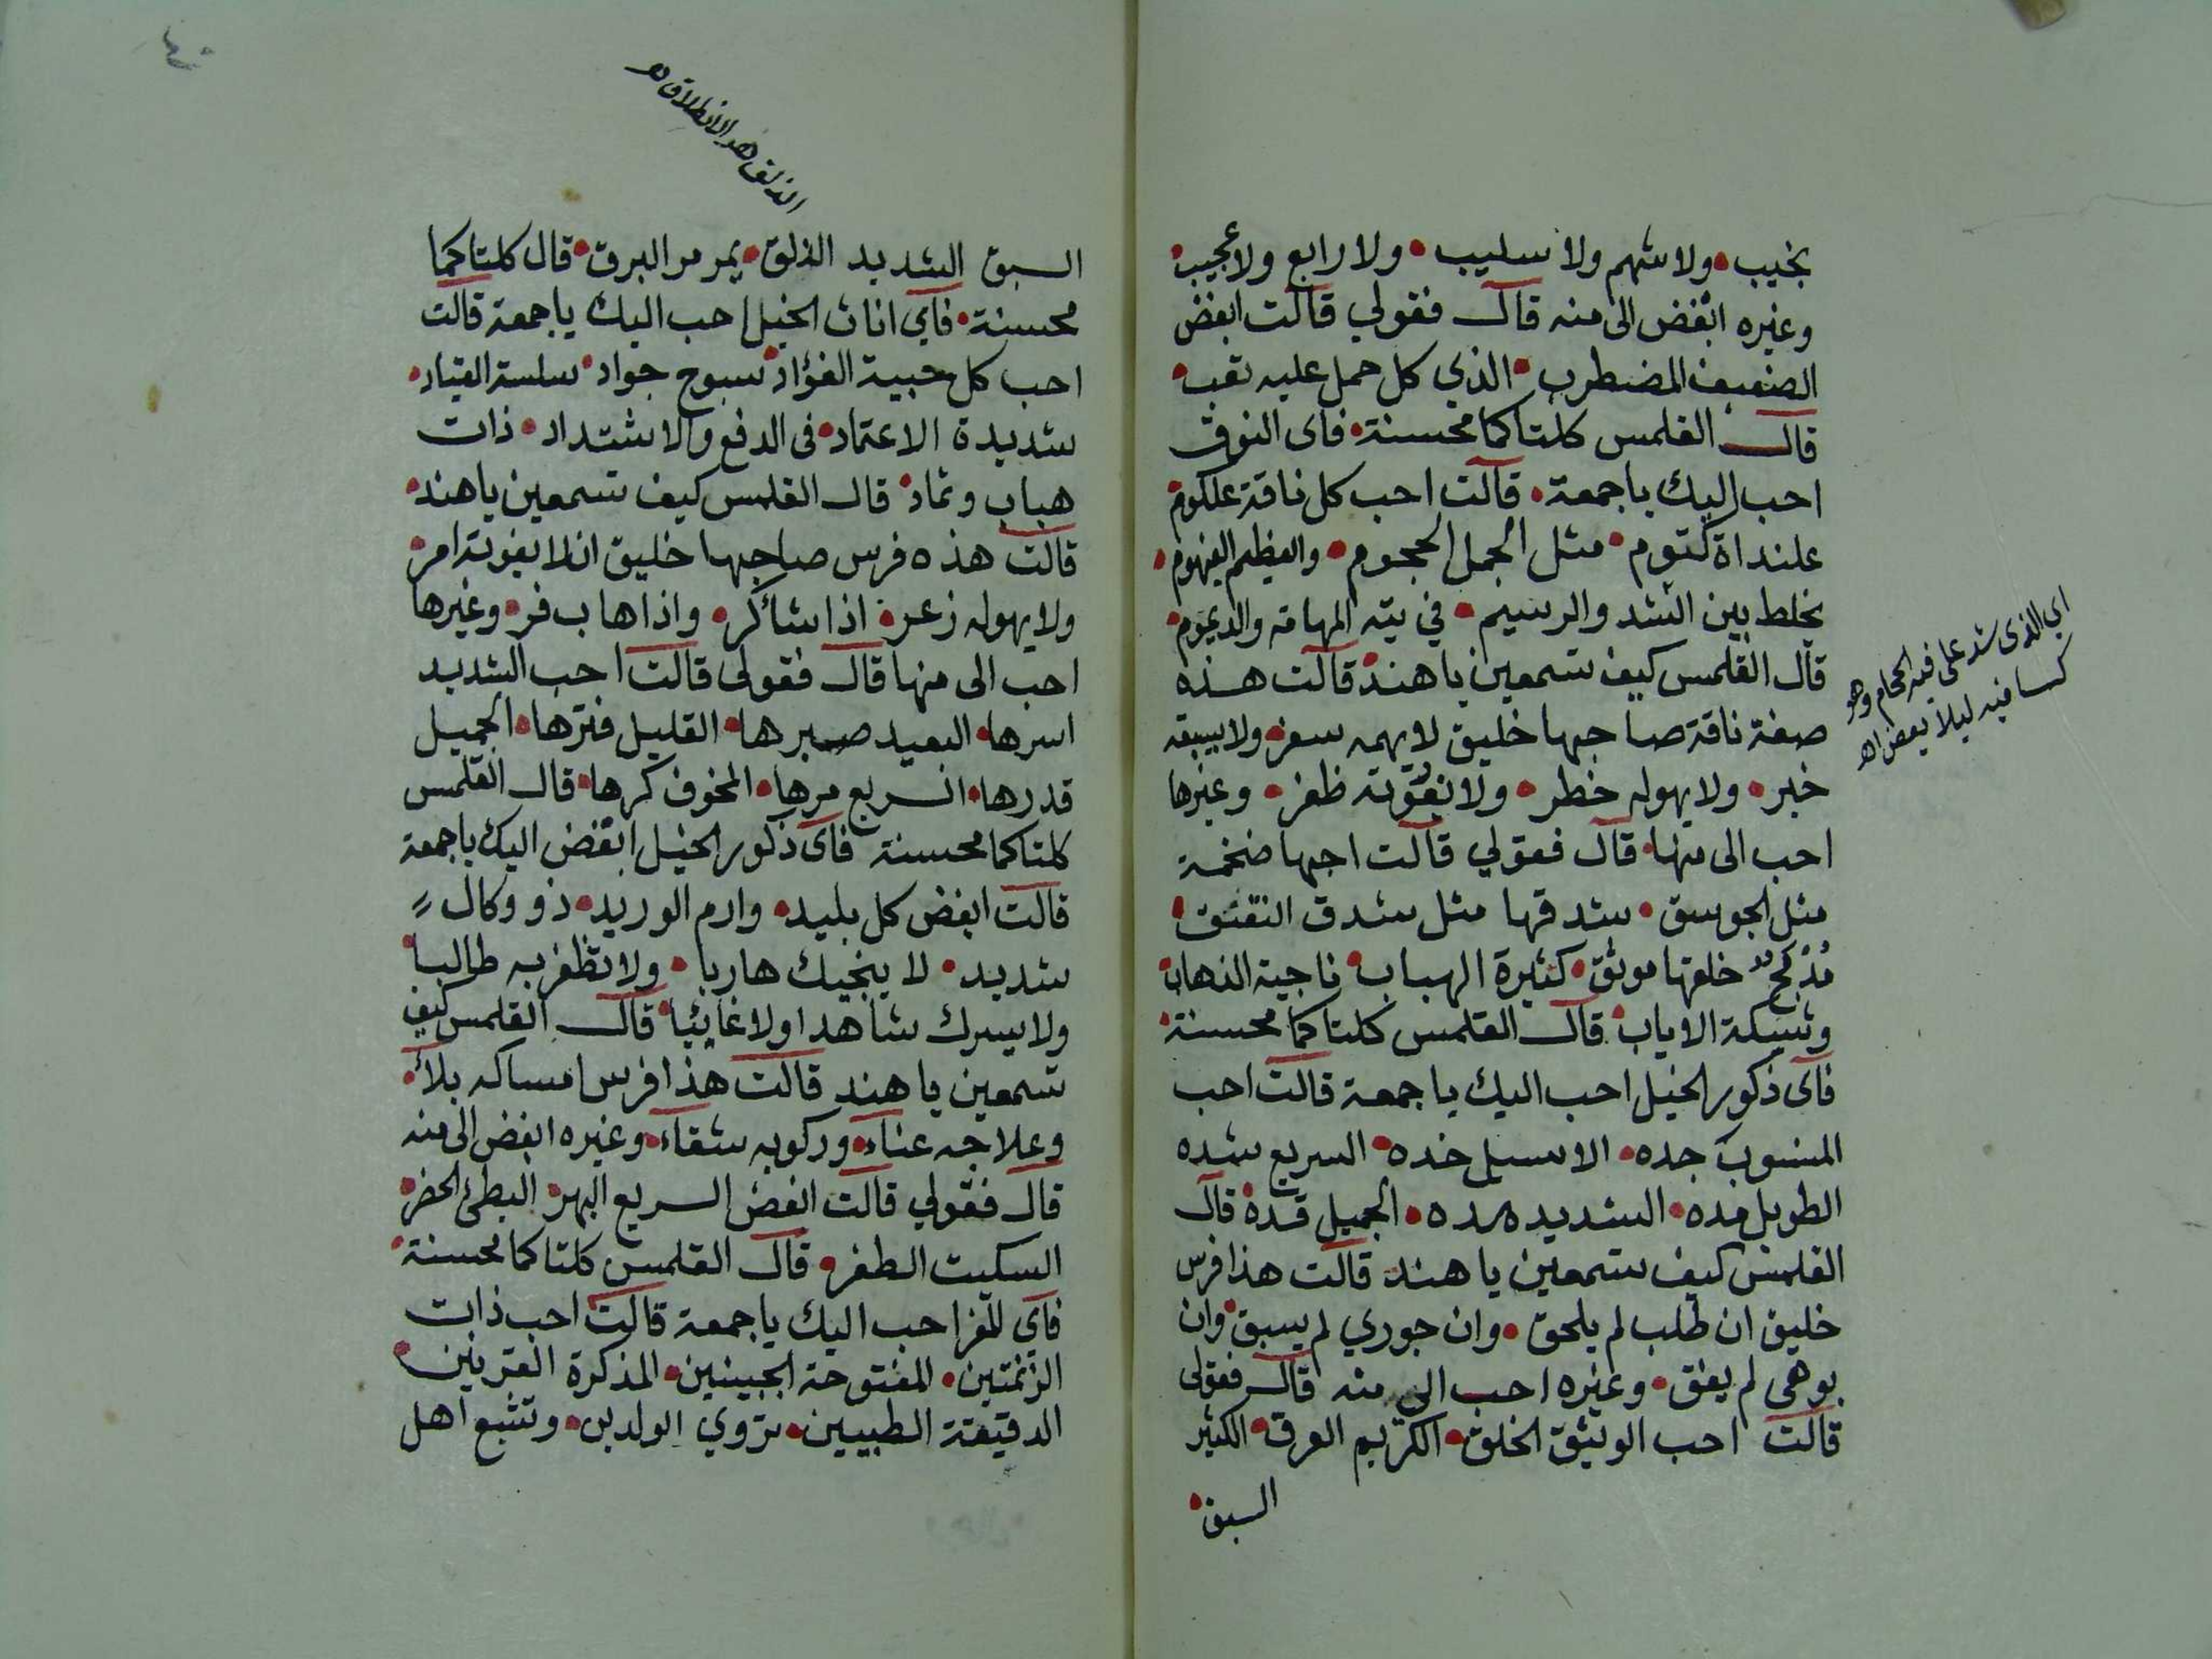 بنجيب ولا شهم ولا سليب ولا رايع ولا عجيب
وغيره ابغض الى منه قال فقولي قالت ابغض
الضعيف المضطرب الذي كل حمل عليه تعب
قال القلمس كلتا كما محسنة فاى النوق
احب اليك يا جمعة قالت احب كل ناقة علكوم
علنداة كتوم مثل الجمل المحجوم والعظيم العيهوم
تخلط بين الشد والرسيم في تيه المهامه والديموم
قال القلمس كيف تسمعين يا هند قالت هذه
صفة ناقة صاحبها خليق لا يهمه سفر ولا يسبقه
خبر ولا يهوله خطر ولا تفوته ظفر وغيرها
احب الى منها قال فقولي قالت احبها ضخمة
مثل الجوسق شدقها مثل شدق النقنق
مدمج خلقها موثق كثيرة الهباب ناجية الذهاب
وشيكة الاياب قال القلمس كلتا كما محسنة
فاى ذكور الخيل احب اليك يا جمعة قالت احب
المنسوب جده الاسيل خده السريع شده
الطويل مده الشديد هده الجميل قده قال
القلمس كيف تسمعين يا هند قالت هذا فرس
خليق ان طلب لم يلحق وان جوري لم يسبق وان
بوهي لم يفق وغيره احب الى منه قال فقولى
قالت احب الوثيق الخلق الكريم العرق الكثير
السبق
اي الذى شد على فيه الحجام وهو
كسا فيه ليلا يعض اهـ
الذلق هو الانطلاق اهـ
السبق الشديد الذلق يمر مر البرق قال كلتا كما
محسنة فاي اناث الخيل احب اليك يا جمعة قالت
احب كل حبية الفؤاد سبوح جواد سلسة القياد
شديدة الاعتماد فى الدفع والاشتداد ذات
هباب وثماد قال القلمس كيف تسمعين يا هند
قالت هذه فرس صاحبها خليق ان لا يفوته امر
ولا يهوله زعر اذا شا كر واذا هاب فر وغيرها
احب الى منها قال فقولى قالت احب الشديد
اسرها البعيد صبرها القليل فترها الجميل
قدرها السريع مرها المخوف كرها قال القلمس
كلتا كما محسنة فاى ذكور الخيل ابغض اليك يا جمعة
قالت ابغض كل بليد وارم الوريد ذو وكال
شديد لا ينجيك هاربا ولا تظفر به طالبا
ولا يسرك شاهدا ولا غايبا قال القلمس كيف
تسمعين يا هند قالت هذا فرس امساكه بلاء
وعلاجه عناء وركوبه شقاء وغيره ابغض الى منه
قال فقولي قالت ابغض السريع البهر البطئ الحضر
السكيت الظفر قال القلمس كلتا كما محسنة
فاي المعز احب اليك يا جمعة قالت احب ذات
الزنمتين المفتوحة الجبينين المذكرة القرينين
الدقيقة الطبيين تروي الولدين وتشبع اهل